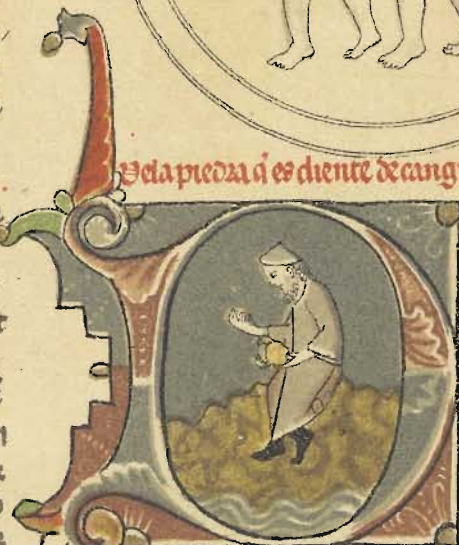 Dela piedra q̃ es diente de cang